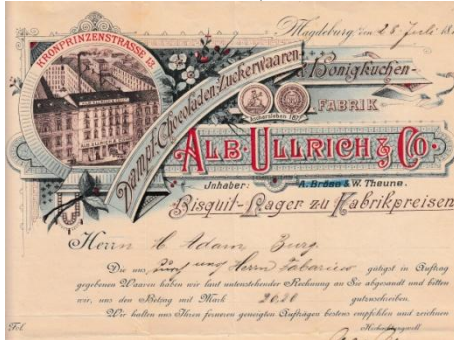 Magdeburg, den 28 Juli 18
KRONPRINZENSTRASSE 13
Dampf-Chocoladen-Zuckerwaaren
& Honigkuchen-
FABRIK
Aschersleben
ALB. ULLRICH & CO.
Inhaber: A. Bröse & W. Theune.
Bisquit-Lager zu Fabrikpreisen
Herrn Adam Burg
Die uns durch Herrn gütigst in Auftrag
gegebenen Waaren haben wir laut untenstehender Rechnung an Sie abgesandt und bitten
wir, uns den Betrag mit Mark 20.20 gutzuschreiben.
Wir halten uns Ihren ferneren geneigten Aufträgen bestens empfohlen und zeichnen
Hochachtungsvoll
Fol.